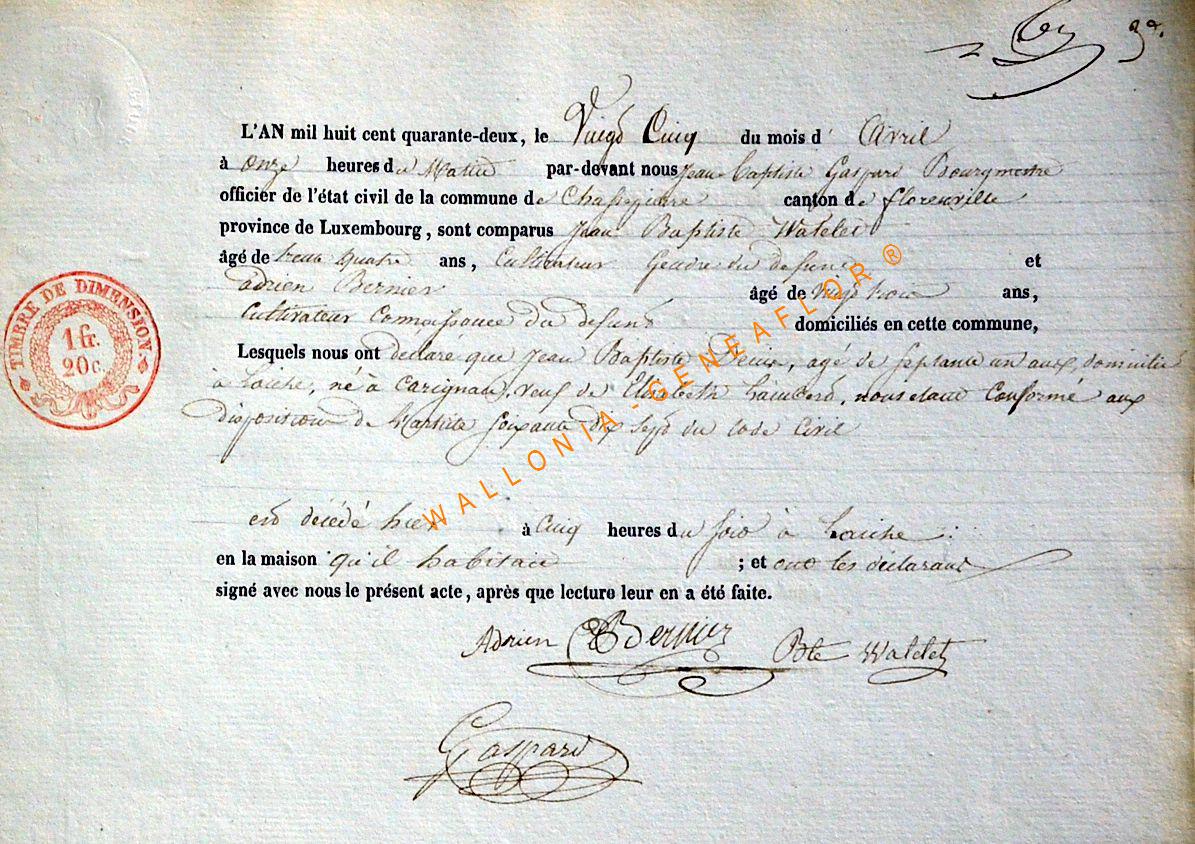 3e.
L'AN mil huit cent quarante-deux, le Vingt Cinq du mois d' Avril
à onze heures du Matin par-devant nous Jean Baptiste Gaspard Bourgmestre
officier de l'état civil de la commune de Chassepierre canton de florenville
province de Luxembourg, sont comparus Jean Baptiste Watelet
âgé de trente quatre ans, Cultivateur Gendre du defunt et
adrien Bernier âgé de vingt trois ans,
Cultivateur Connaissance du defunt domiciliés en cette commune,
Lesquels nous ont declaré que Jean Baptiste, age de septante un ans, domicilié
à Laiche, né à Carignan, veuf de Elisabeth Lambert, nous etant Conformé aux
disposition de l'article soixante dix sept du Code Civil
est décédé hier à Cinq heures du soir à Laiche
en la maison qu'il habitait ; et ont les déclarant
signé avec nous le présent acte, après que lecture leur en a été faite.
Adrien Bernier Bte Watelet
Gaspard
TIMBRE DE DIMENSION.
1 fr.
20 c.
WALLONIA - GENEAFLOR ®